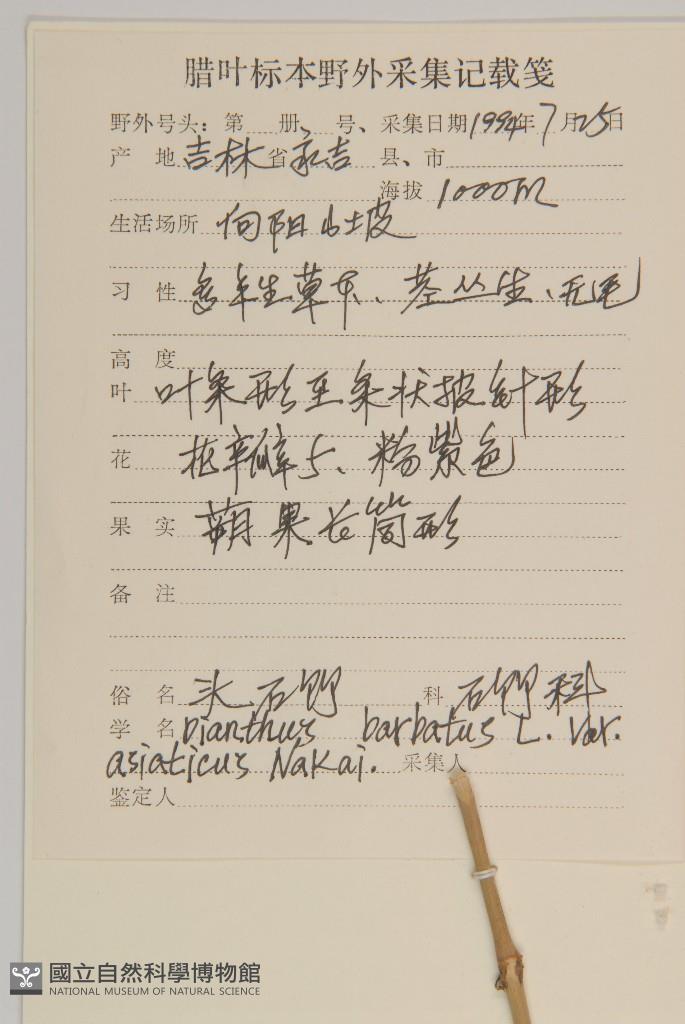 腊叶标本野外采集记载笺
野外号头：第 册、 号、采集日期1994年7月25日
产 地 吉林 省 永吉 县、市
海拔 1000m
生活场所 向阳山坡
习 性 多年生草本、茎丛生、无毛
高 度
叶 叶条形至条状披针形
花 花瓣5、粉紫色
果 实 蒴果长筒形
备 注
俗 名 头石竹 科 石竹科
学 名 Dianthus barbatus L. Var.
asiaticus Nakai. 采集人
鉴定人
國立自然科學博物館
NATIONAL MUSEUM OF NATURAL SCIENCE